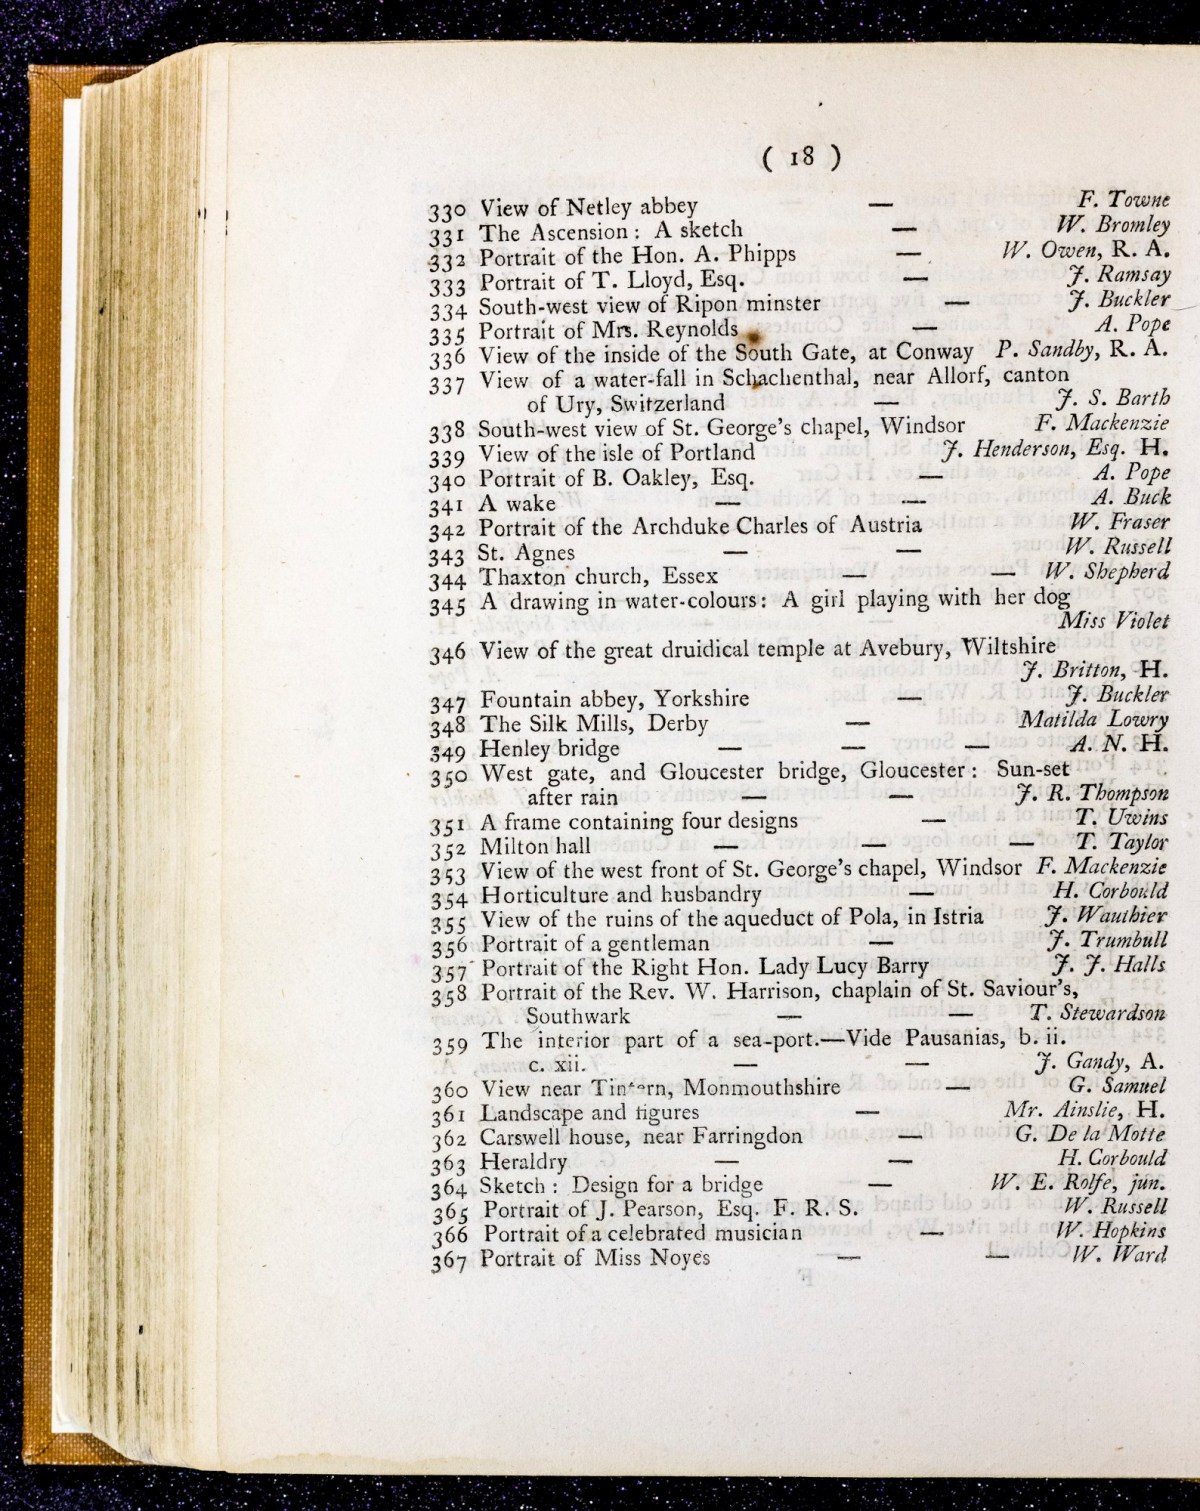 ( 18 )
330 View of Netley abbey — F. Towne
331 The Ascension : A sketch — W. Bromley
332 Portrait of the Hon. A. Phipps — W. Owen, R. A.
333 Portrait of T. Lloyd, Esq. — J. Ramsay
334 South-west view of Ripon minster — J. Buckler
335 Portrait of Mrs. Reynolds — A. Pope
336 View of the inside of the South Gate, at Conway P. Sandby, R. A.
337 View of a water-fall in Schachenthal, near Allorf, canton
of Ury, Switzerland — J. S. Barth
338 South-west view of St. George's chapel, Windsor F. Mackenzie
339 View of the isle of Portland J. Henderson, Esq. H.
340 Portrait of B. Oakley, Esq. — A. Pope
341 A wake — — A. Buck
342 Portrait of the Archduke Charles of Austria W. Fraser
343 St. Agnes — — W. Russell
344 Thaxton church, Essex — — W. Shepherd
345 A drawing in water-colours : A girl playing with her dog
Miss Violet
346 View of the great druidical temple at Avebury, Wiltshire
J. Britton, H.
347 Fountain abbey, Yorkshire — J. Buckler
348 The Silk Mills, Derby — Matilda Lowry
349 Henley bridge — — — A. N. H.
350 West gate, and Gloucester bridge, Gloucester : Sun-set
after rain — — J. R. Thompson
351 A frame containing four designs — T. Uwins
352 Milton hall — — — T. Taylor
353 View of the west front of St. George's chapel, Windsor F. Mackenzie
354 Horticulture and husbandry — H. Corbould
355 View of the ruins of the aqueduct of Pola, in Istria J. Wauthier
356 Portrait of a gentleman — J. Trumbull
357 Portrait of the Right Hon. Lady Lucy Barry J. J. Halls
358 Portrait of the Rev. W. Harrison, chaplain of St. Saviour's,
Southwark — — T. Stewardson
359 The interior part of a sea-port.—Vide Pausanias, b. ii.
c. xii. — — J. Gandy, A.
360 View near Tintern, Monmouthshire — G. Samuel
361 Landscape and figures — Mr. Ainslie, H.
362 Carswell house, near Farringdon — G. De la Motte
363 Heraldry — — H. Corbould
364 Sketch : Design for a bridge — W. E. Rolfe, jun.
365 Portrait of J. Pearson, Esq. F. R. S. W. Russell
366 Portrait of a celebrated musician — W. Hopkins
367 Portrait of Miss Noyes — — W. Ward